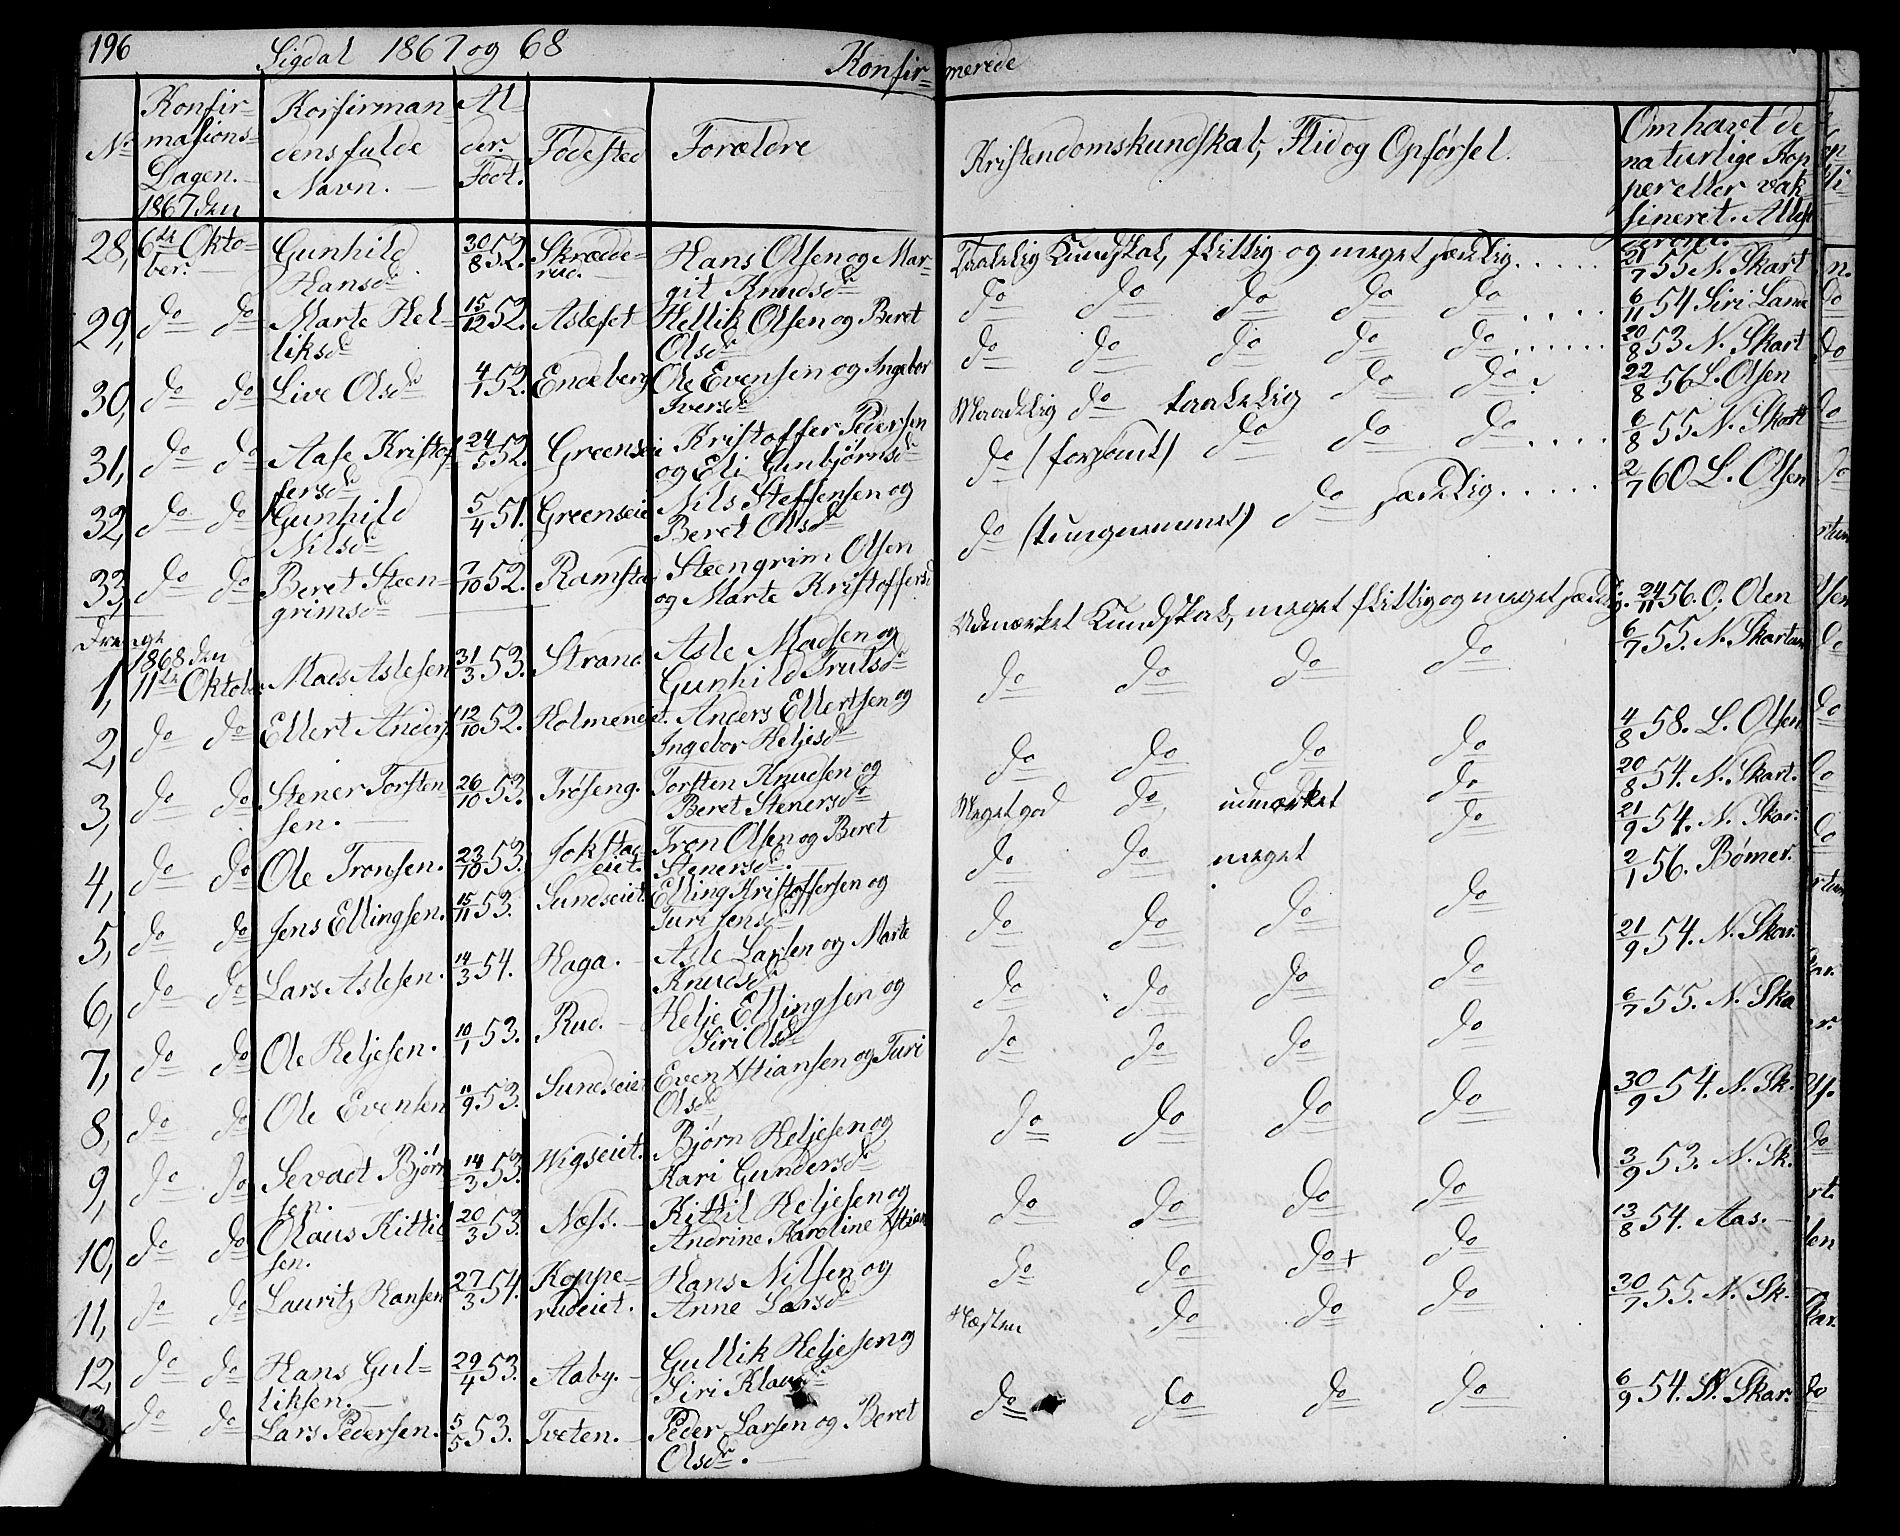 196
Sigdal 1867 og 68
Konfir=
merede
Nr
Konfir=
masions=
Dagen.
1867 den
Konfirman
dens fulde
Navn.
Al
der.
Født.
Fødested
Forældre
Kristendomskundskab, Flid og Opførsel.
Om havt de
naturlige Kop
per eller vak=
sineret. Attest
28, 6te Okto=
ber. Gunhild
Hansdr 30/8 52. Skrædde=
rud. Hans Olsen og Mar=
git Knudsdr Taalelig Kundskab, flittig og meget sædelig..... 21/7 55 N. Skart
29, do do Marte Hel=
liksdr 15/12 52. Aslefet Hellik Olsen og Beret
Olsdr do do do do do .... 6/11 54 Siri Lande
30, do do Live Olsdr 4/1 52. Endeberg Ole Evensen og Ingebor
Iversdr do do do do do ...... 20/8 53 N. Skart
31, do do Aase Kristof
fersdr 24/5 52. Greenseie Kristoffer Pedersen
og Eli Gunbjørnsdr Maadelig do taalelig do do 22/8 56 L. Olsen
32, do do Gunhild
Nilsdr 5/4 51. Greenseie Nils Steffensen og
Beret Olsdr do (forsømt) do do do .... 6/8 55 N. Skart
33, do do Beret Steen=
grimsdr 7/10 52. Ramstad Steengrim Olsen
og Marte Kristoffersd do (tungnemmet) do sædelig..... 2/7 60 L. Olsen
Drenge
1868 den
1, 11te Oktober Mads Aslesen 31/3 53. Strand Asle Madsen og
Gunhild Trulsdr Udmærket Kundskab, meget flittig og meget sædelig. 24/11 56. O. Olen
2, do do Ellert Anders 12/10 52. Holmeneiet. Anders Ellertsen og
Ingebor Heljesdr do do do do 6/7 55. N. Skartum
3, do do Stener Torsten
sen. 26/10 53. Trøseng. Torsten Knudsen og
Beret Stenersdr do do do do 4/8 58. L. Olsen
4, do do Ole Tronsen. 23/10 53. Jokstad
eiet. Tron Olsen og Beret
Stenersdr. Meget god do udmærket do 20/8 54. N. Skart.
5, do do Jens Ellingsen. 15/11 53. Sundseiet Elling Kristoffersen og
Turi Jensdr do do meget do 21/9 54. N. Skar.
6, do do Lars Aslesen. 14/3 54. Haga. Asle Larsen og Marte
Knudsdr do do do do 2/1 56. Bømer.
7, do do Ole Heljesen. 10/1 53. Rud. Helje Ellingsen og
Siri Olsdr do do do do 21/9 54. N. Skar.
8, do do Ole Evensen 11/9 53. Sundseiet Even Xstiansen og Turi
Olsdr do do do do 6/7 55. N. Ska
9, do do Sevadt Bjørn
sen. 14/3 53. Wigseiet. Bjørn Heljesen og
Kari Gundersdr do do do do 30/9 54. N. Sk.
10, do do Olaus Kittil
sen. 20/3 53. Næss. Kittil Heljesen og
Andrine Karoline Xstian do do do do 3/9 53. N. Sk.
11, do do Lauritz Hansen 27/3 54. Koppe=
rudeiet. Hans Nilsen og
Anne Larsdr do do do+ do 13/8 54. Aas.
12, do do Hans Gul=
liksen. 29/4 53. Aaby. Gullik Heljesen og
Siri Klausdr Næsten do do do 30/7 55. N. Sk.
13, do do Lars Pedersen. 5/5 53. Tveten. Peder Larsen og Beret
Olsdr. do do do do 6/9 54. N. Skar.